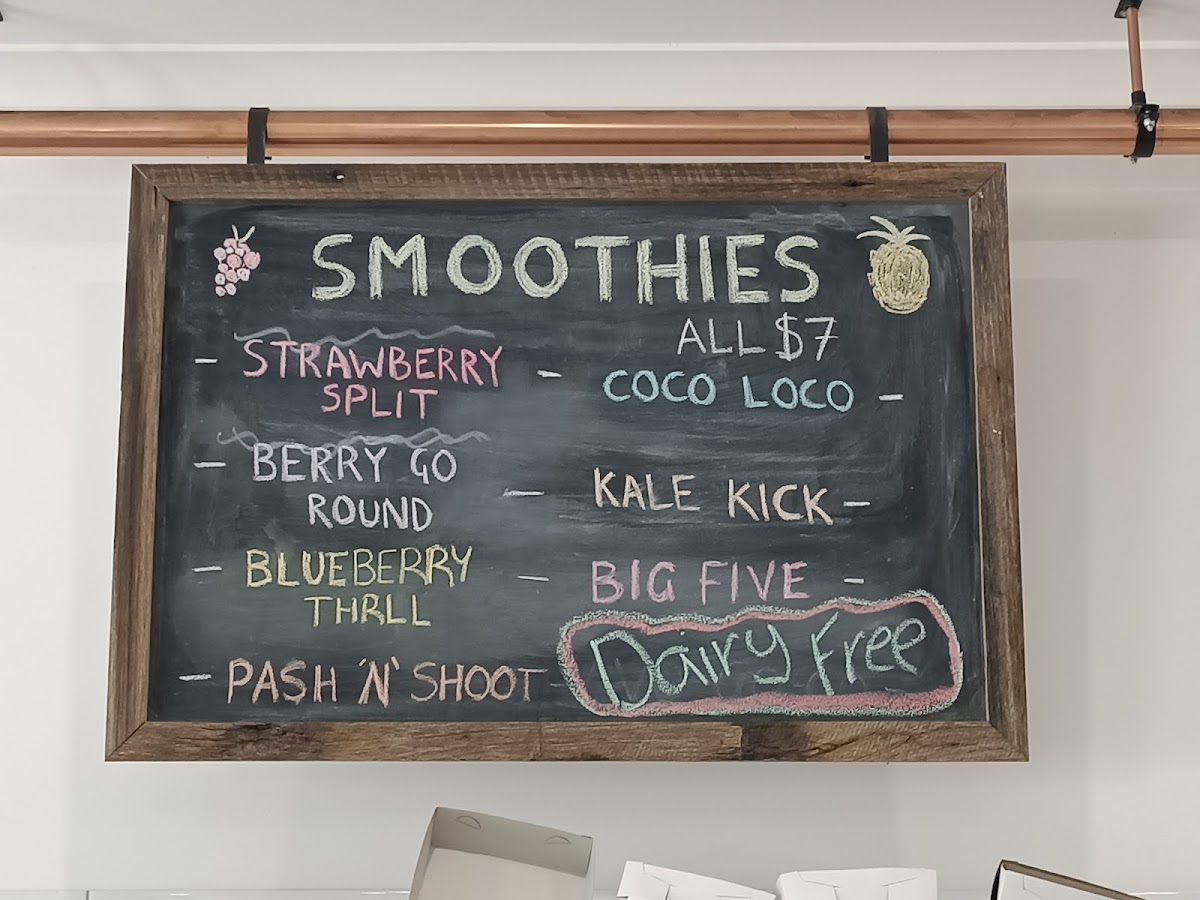 SMOOTHIES
ALL $7
- STRAWBERRY -
SPLIT
COCO LOCO -
- BERRY GO
ROUND
- KALE KICK -
- BLUEBERRY
THRLL
- BIG FIVE -
- PASH 'N' SHOOT -
Dairy Free